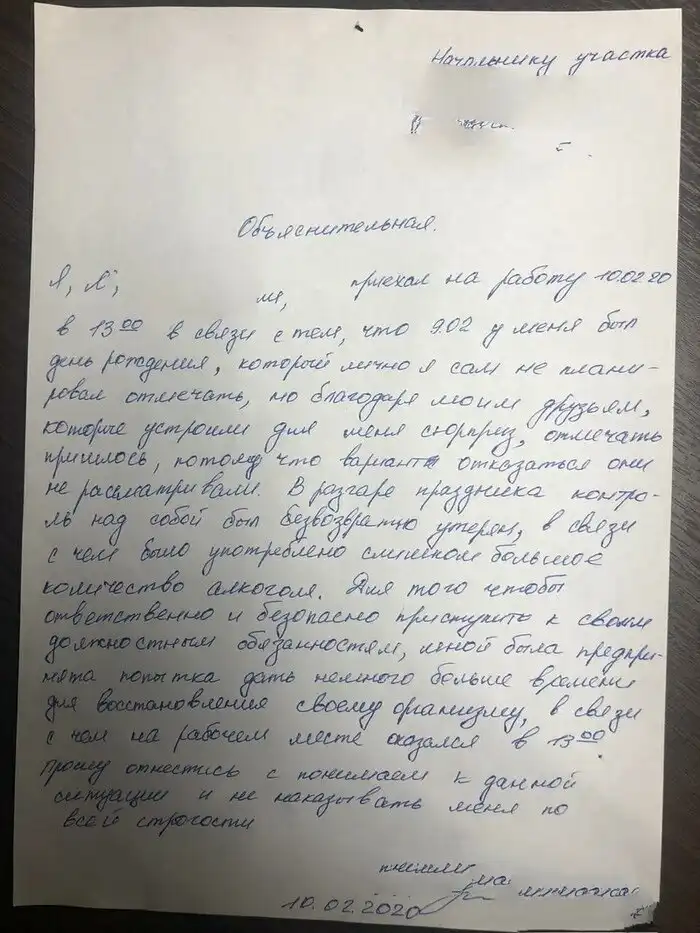 Начальнику участка
Объяснительная.
Я, приехал на работу 10.02.20
в 13⁰⁰ в связи с тем, что 9.02 у меня был
день рождения, который лично я сам не плани-
ровал отмечать, но благодаря моим друзьям,
которые устроили для меня сюрприз, отмечать
пришлось, потому что варианты отказаться они
не рассматривали. В разгаре праздника контро-
ль над собой был безвозвратно утерян, в связи
с чем было употреблено слишком большое
количество алкоголя. Для того чтобы
ответственно и безопасно приступить к своим
должностным обязанностям, мной была предпри-
нята попытка дать немного больше времени
для восстановления своему организму, в связи
с чем на рабочем месте оказался в 13⁰⁰
Прошу отнестись с пониманием к данной
ситуации и не наказывать меня по
всей строгости
10.02.2020